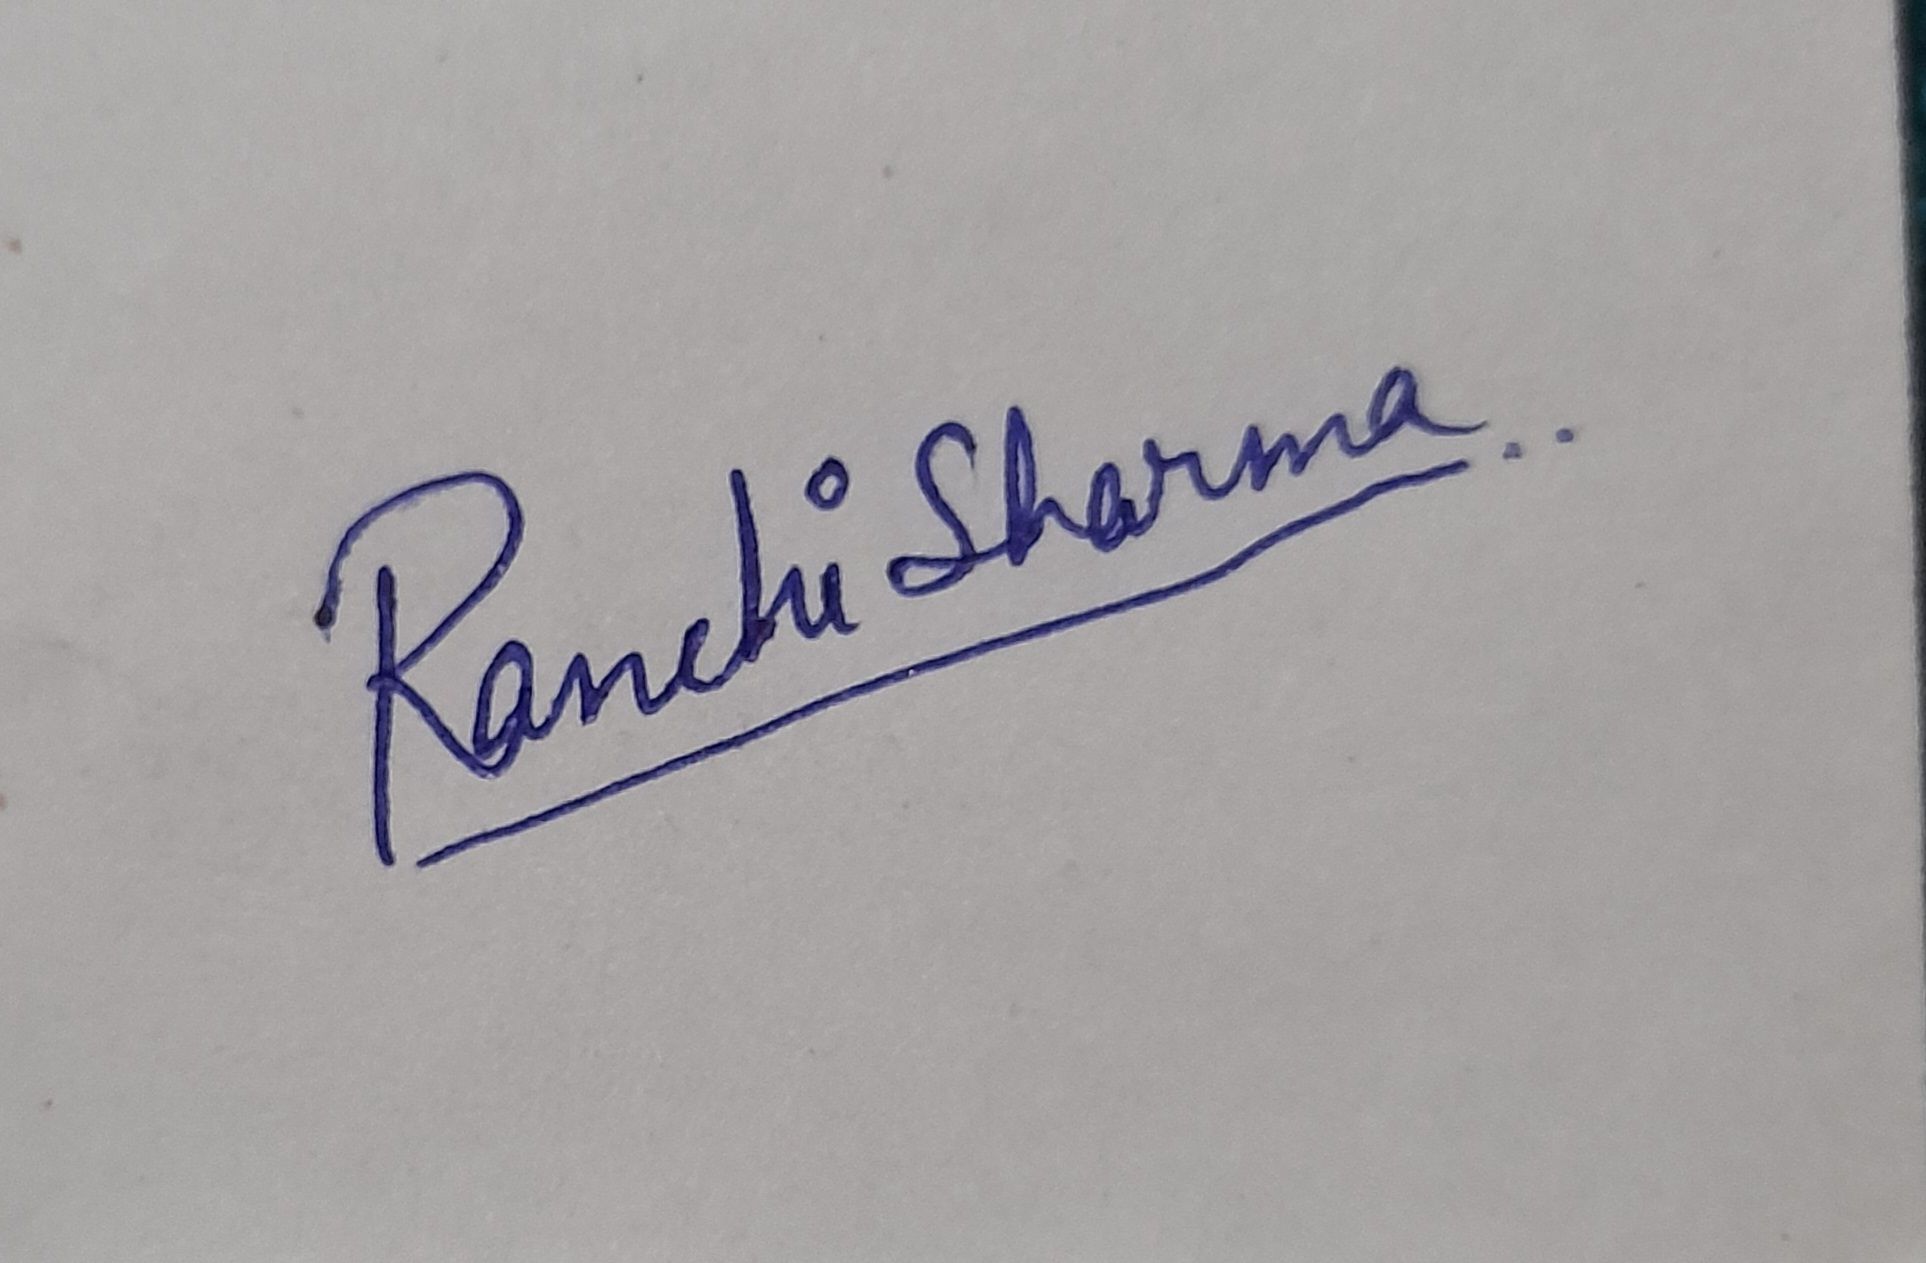 Ranchi Sharma..